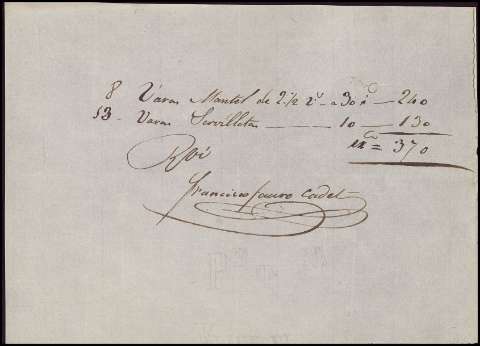 8 Varas Mantel de 2 1/2 vs a 30 rs — 240
13 - Varas Servilletas — 10 — 130
rn = 370
Rvi
Francisco Cadet